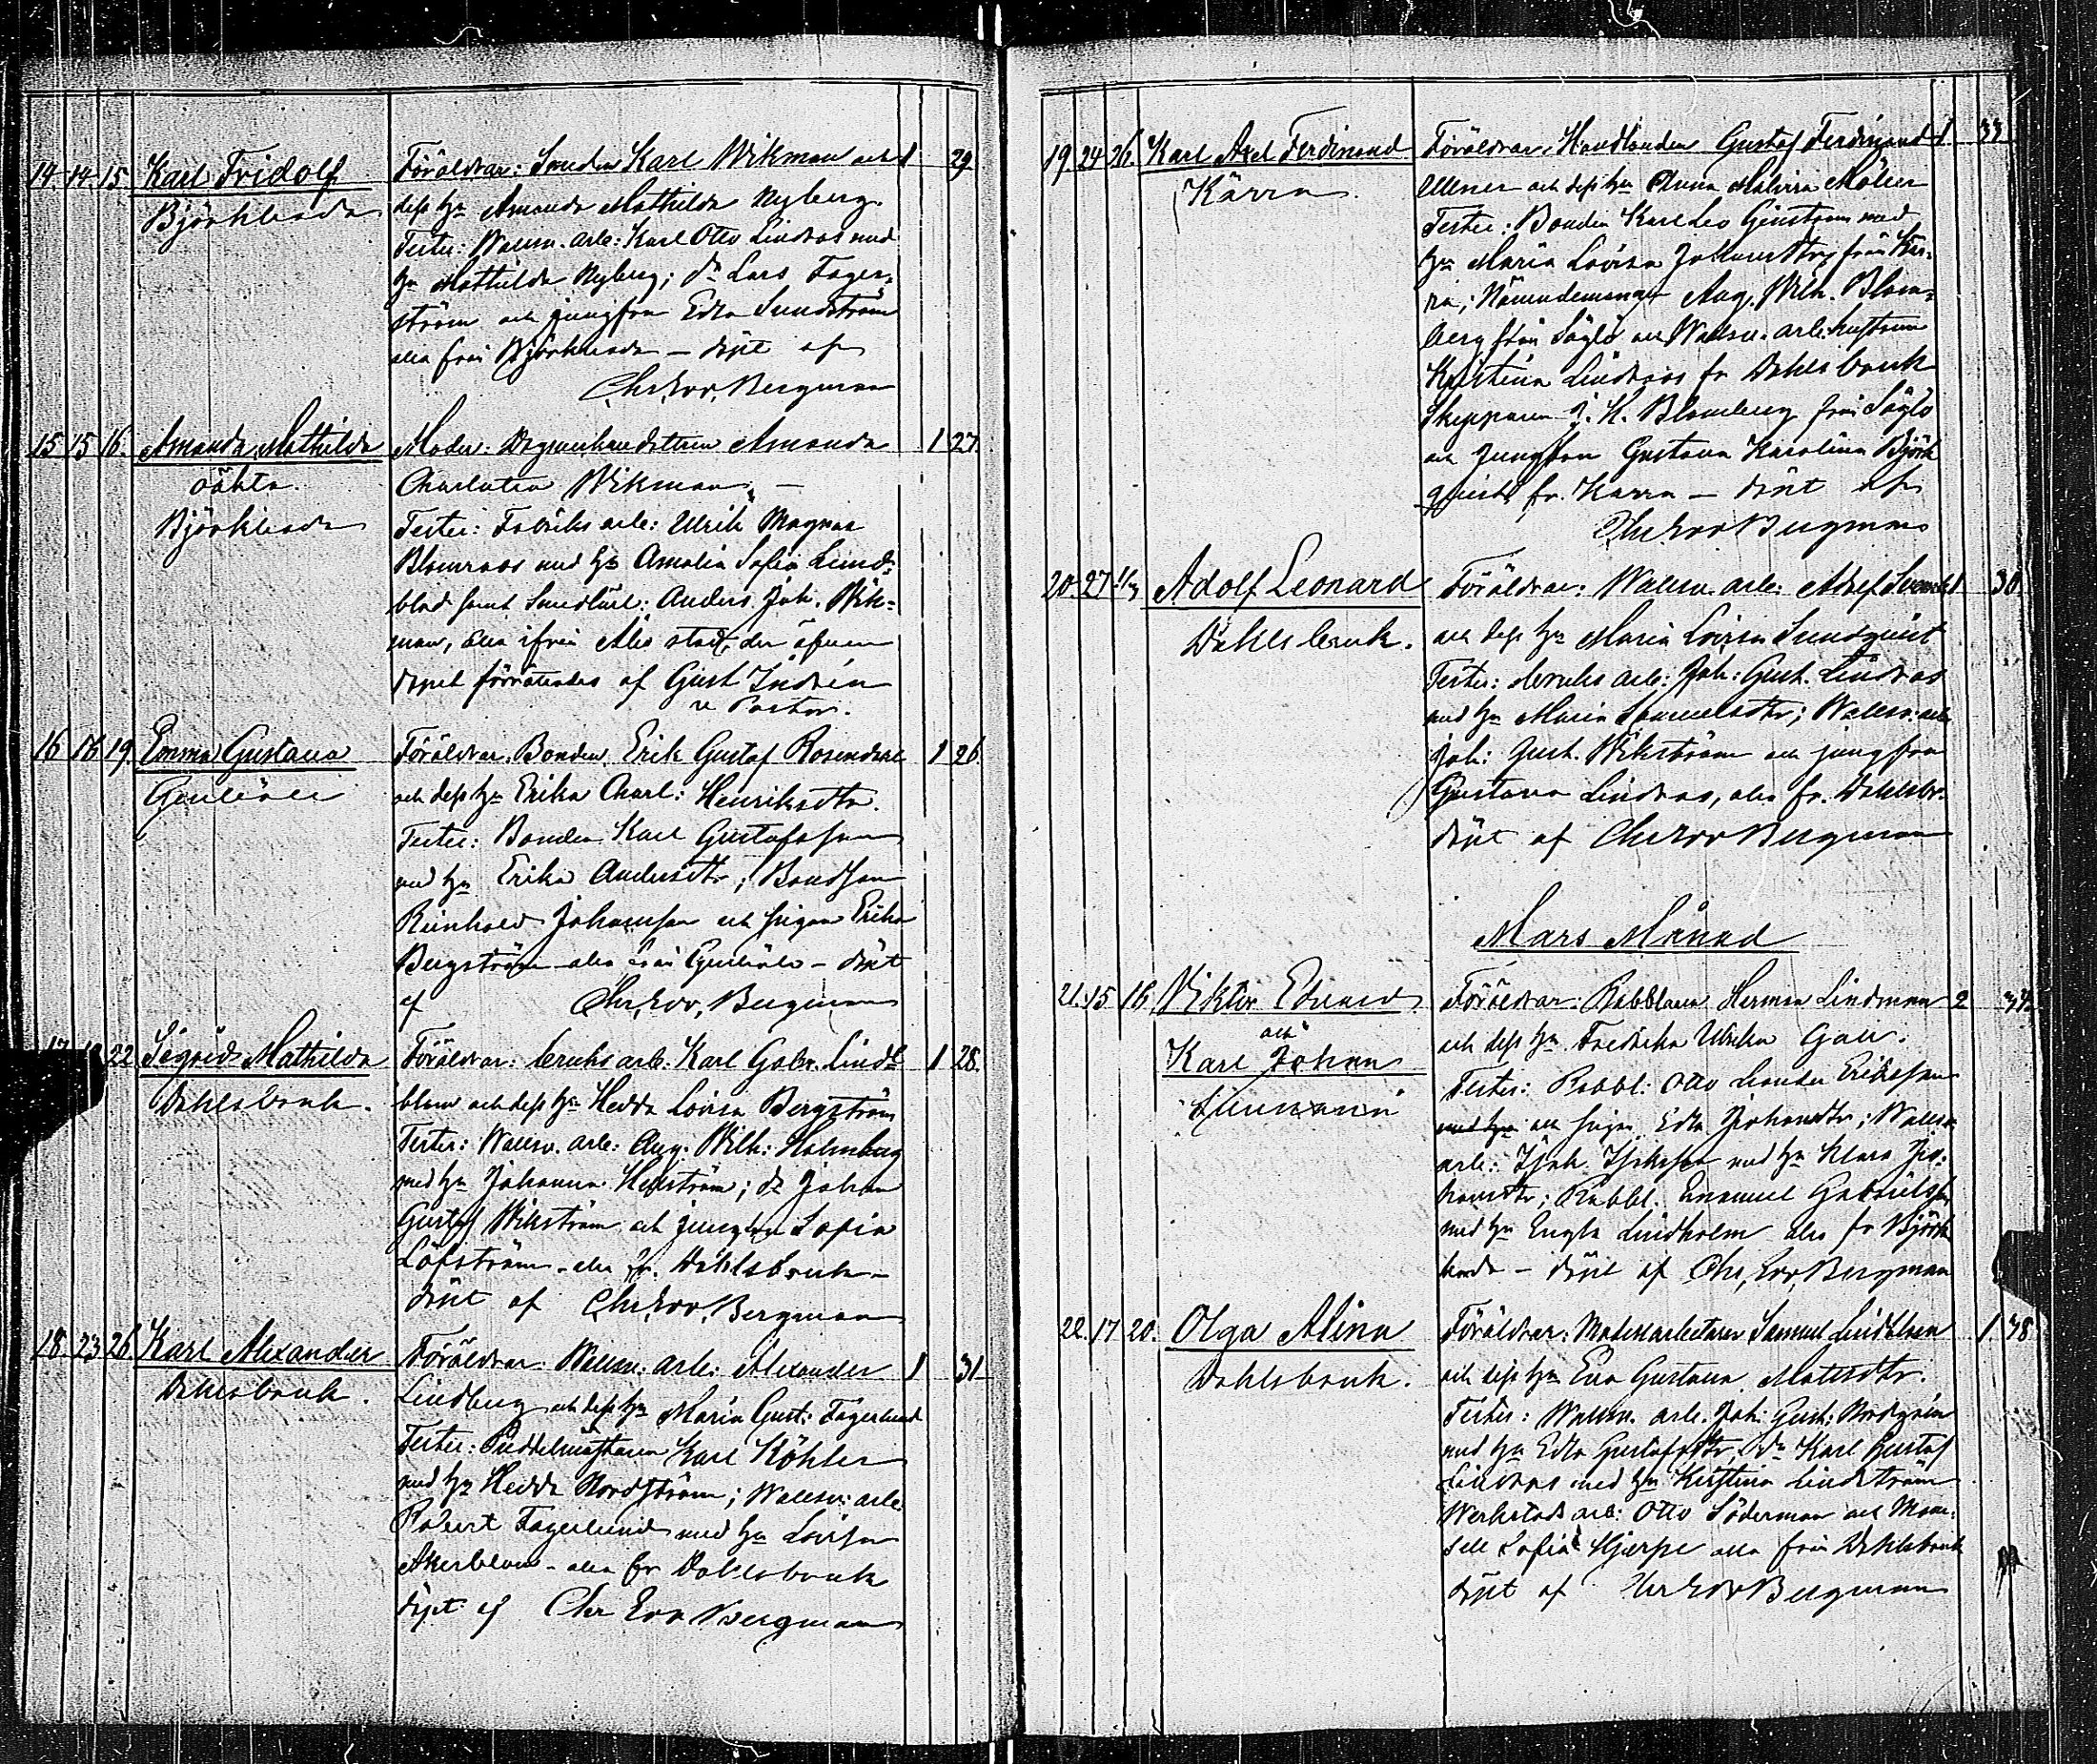 14 14 15 Karl Fridolf Föräldrar: Smeden Karl Wikman och 1 29
Björkboda dess hu Amanda Mathilda Nyberg.
Testes: Walsv. arb: Karl Otto Lindroos med
hu Mathilda Nyberg; do Lars Fager-
ström och jungfru Edla Sundström
alla från Björkboda – döpt af
Chr. Edv. Bergman
15 15 16. Amanda Mathilda Moder: Amanda 1 27.
oäkta. Charlotta Wikman. –
Björkboda Testes: Fabriks arb: Ulrik Magnus
Blomroos med hu Amalia Sofia Lind-
blad samt Smedlärl: Anders Joh. Wik-
man, alla ifrån Åbo stad, der äfven
dopet förrättades af Gust Indrén
v Pastor.
16 16 19. Emma Gustava Föräldrar. Bonden Erik Gustaf Rosendahl 1 26.
och dess hu Erika Charl: Henriksdtr.
Testes: Bonden Karl Gustafsson
med hu Erika Andersdtr; Bondson
Reinhold Johansson och pigan Erika
Bergström alla från – döpt
af Chr. Edv. Bergman
22 Sigrid Mathilda Föräldrar: bruks arb. Karl Gabr. Lind- 1 28.
Dahlsbruk. blom och dess hu Hedda Lovisa Bergström
Testes: Walsv. arb: Aug. Wilh: Holmberg
med hu Johanna Hellström; do Johan
Gustaf Wikström och jungfru Sofia
Löfström – alla fr. Dahlsbruk –
döpt af Chr. Edv. Bergman
18 23 26. Karl Alexander Föräldrar: Walsv. arb: Alexander 1 31
Dahlsbruk. Lindberg och dess hu Maria Gust: Fagerlund
Testes: Puddelmästaren Karl Köhler
med hu Hedda Nordström; Walsv: arb.
Robert Fagerlund med hu Lovisa
Åkerblom – alla fr Dahlsbruk
döpt af Chr Edv Bergman
19. 24 26 Karl Axel Ferdinand Föräldrar: Handlanden Gustaf Ferdinand 1 33
Kärra. och dess hu Anna Malvina Möller
Testes: Bonden Karl Leo Genström med
hu Maria Lovisa från Kär-
ra; Nämndeman Aug. Wilh. Blom-
berg från Söglö och Walsv. arb. hustrun
Kristina Lindroos fr Dahlsbruk
Skepparen J. H. Blomberg från Söglö
och Jungfru Gustava Karolina Björk
qvist fr. Kärra – döpt af
Chr Edv Bergman
20. 27 1/3 Adolf Leonard Föräldrar: Walsv. arb: Adolf 1 30
Dahlsbruk. och dess hu Maria Lovisa Sundqvist
Testes: bruks arb: Joh: Gust. Lindroos
med hu Maria Samuelsdtr; Walsv: arb
Joh: Gust. Wikström och jungfru
Gustava Lindroos, alla fr. Dahlsbr.
döpt af Chr Edv Bergman
Mars Månad
21. 15 16. Viktor Edvard Föräldrar: Backstun Herman Lindman 2
och och dess hu Fredrika Ulrika Gall.
Karl Johan Testes: Otto Leander Eriksson
med hu och pigan Edla Johansdtr; Walsv.
arb: Isak Isaksson med hu Klara Jo-
hansdtr; Emanuel Gabrielsson
med hu Engla Lindholm alla fr Björk
boda – döpt af Chr, Edv Bergman
22. 17 20. Olga Alina Föräldrar: Samuel Lindblom 1. 38
Dahlsbruk. och dess hu Eva Gustava Mattsdtr.
Testes: Walsv. arb. Joh: Gust: Nordgrén
med hu Edla Gustafsdtr, do Karl Gustaf
Lindroos med hu Kristina Lindström
Werkstads arb: Otto Söderman och Mam-
sell Sofia Hjerpe alla från Dahlsbruk
döpt af Chr Edv Bergman